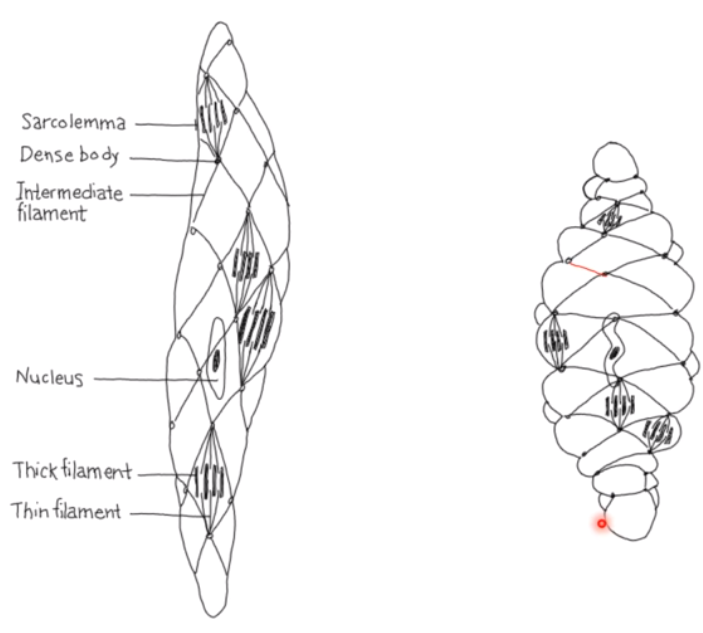 Sarcolemma
Dense body
Intermediate
filament
Nucleus
Thick filament
Thin filament